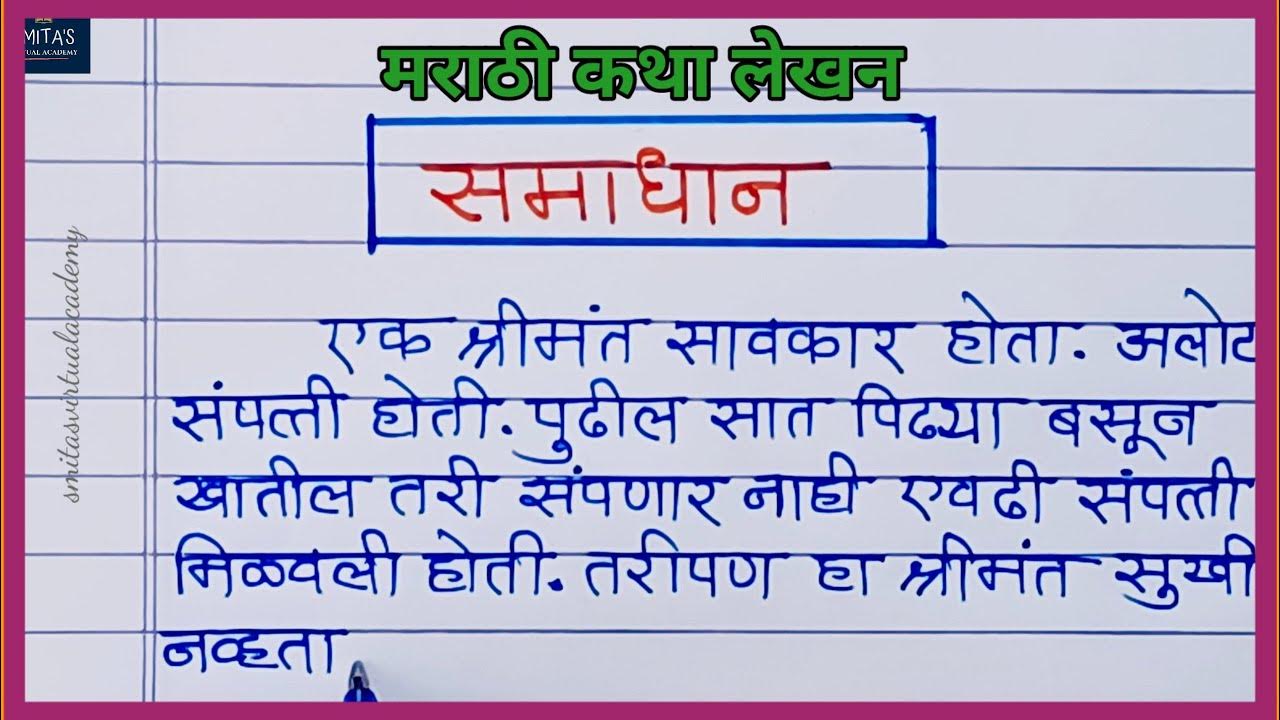 MITA'S
TUAL ACADEMY
मराठी कथा लेखन
समाधान
smitasvirtualacademy
एक श्रीमंत सावकार होता. अलोट
संपत्ती होती. पुढील सात पिढ्या बसून
खातील तरी संपणार नाही एवढी संपत्ती
मिळवली होती. तरीपण हा श्रीमंत सुखी
नव्हता